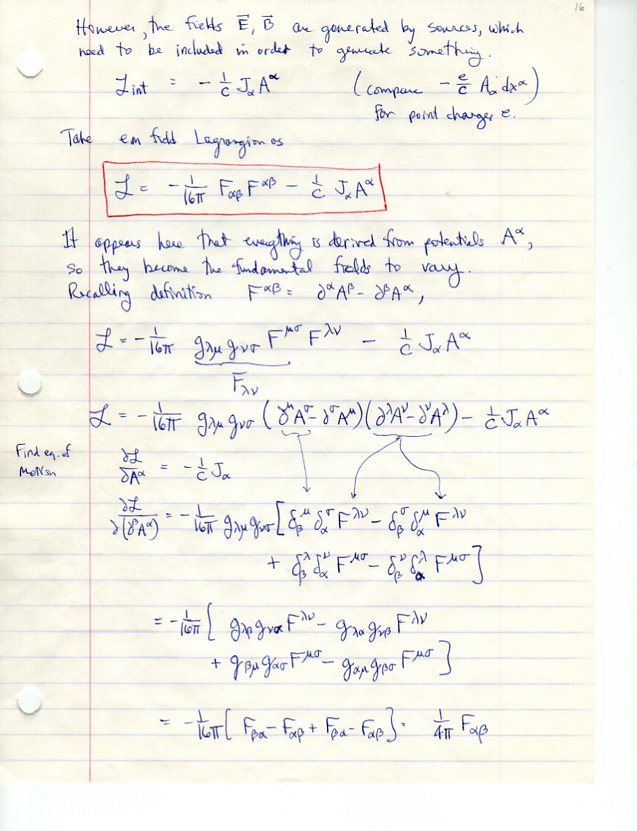 16
However, the fields E⃗, B⃗ are generated by sources, which
need to be included in order to generate something.
ℒint = - 1/c JαA^α (compare - e/c Aαdx^α)
for point charges e.
Take em field Lagrangian as
ℒ = - 1/16π FαβF^αβ - 1/c JαA^α
It appears here that everything is derived from potentials A^α,
so they become the fundamental fields to vary.
Recalling definition F^αβ = ∂^αA^β - ∂^βA^α,
ℒ = - 1/16π gλμ gνσ F^μσ F^λν - 1/c JαA^α
Fλν
ℒ = - 1/16π gλμ gνσ (∂^μA^σ - ∂^σA^μ)(∂^λA^ν - ∂^νA^λ) - 1/c JαA^α
Find eq. of
Motion
∂ℒ/∂A^α = - 1/c Jα
∂ℒ/∂(∂^βA^α) = - 1/16π gλμ gνσ [δβ^μ δα^σ F^λν - δβ^σ δα^μ F^λν
+ δβ^λ δα^ν F^μσ - δβ^ν δα^λ F^μσ]
= - 1/16π [ gλβ gνα F^λν - gλα gνβ F^λν
+ gβμ gασ F^μσ - gαμ gβσ F^μσ ]
= - 1/16π [ Fβα - Fαβ + Fβα - Fαβ ] = 1/4π Fαβ